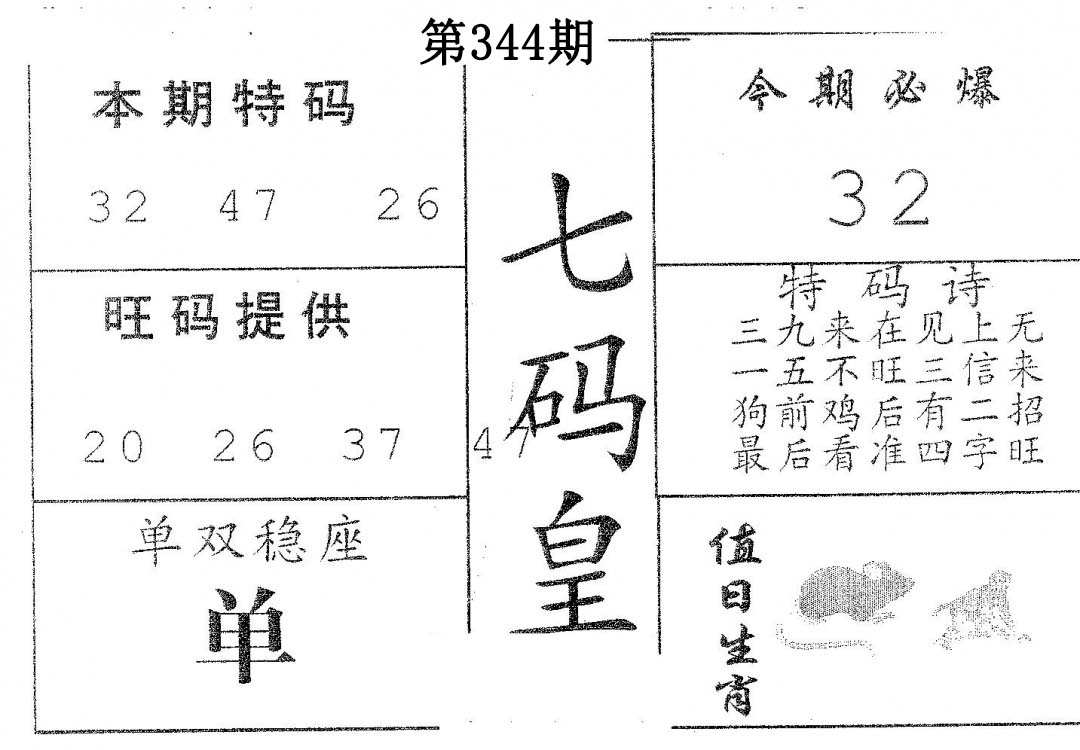 第344期
本期特码
32 47 26
旺码提供
20 26 37 47
单双稳座
单
七码皇
今期必爆
32
特码诗
三九来在见上无
一五不旺三信来
狗前鸡后有二招
最后看准四字旺
值日生肖